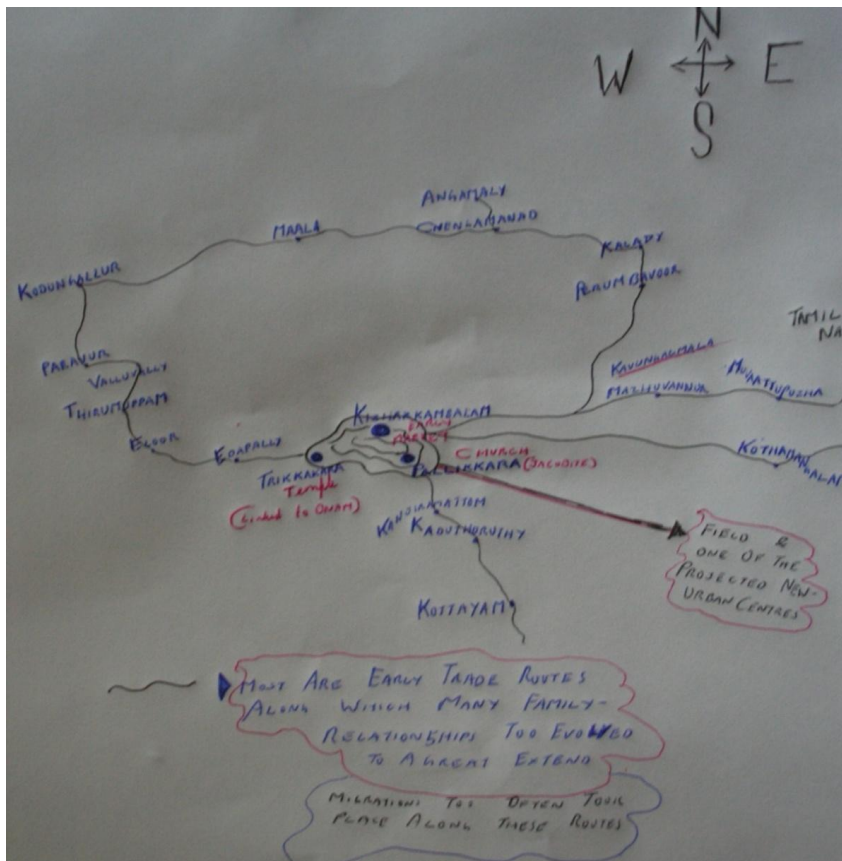 N
W E
S
ANGAMALY
MAALA
CHENGAMANAD
KALADY
KODUNGALLUR
PERUMBAVOOR
TAMIL
NA
PARAVUR
VALLUVALLY
KAVUNGAUMALA
THIRUMUPPAM
MAZHUVANNUR
MUVATTUPUZHA
KIZHAKKAMBALAM
EARLY
MARKET
ELOOR
EDAPALLY
CHURCH
KOTHAMAN
GALAM
TRIKKAKARA
PALLIKKARA (JACOBITE)
Temple
(Linked to ONAM)
KANJIRAMATTOM
KADUTHURUTHY
FIELD &
ONE OF THE
PROJECTED NEW-
URBAN CENTRES
KOTTAYAM
MOST ARE EARLY TRADE ROUTES
ALONG WHICH MANY FAMILY-
RELATIONSHIPS TOO EVOLVED
TO A GREAT EXTEND
MIGRATIONS TOO OFTEN TOOK
PLACE ALONG THESE ROUTES